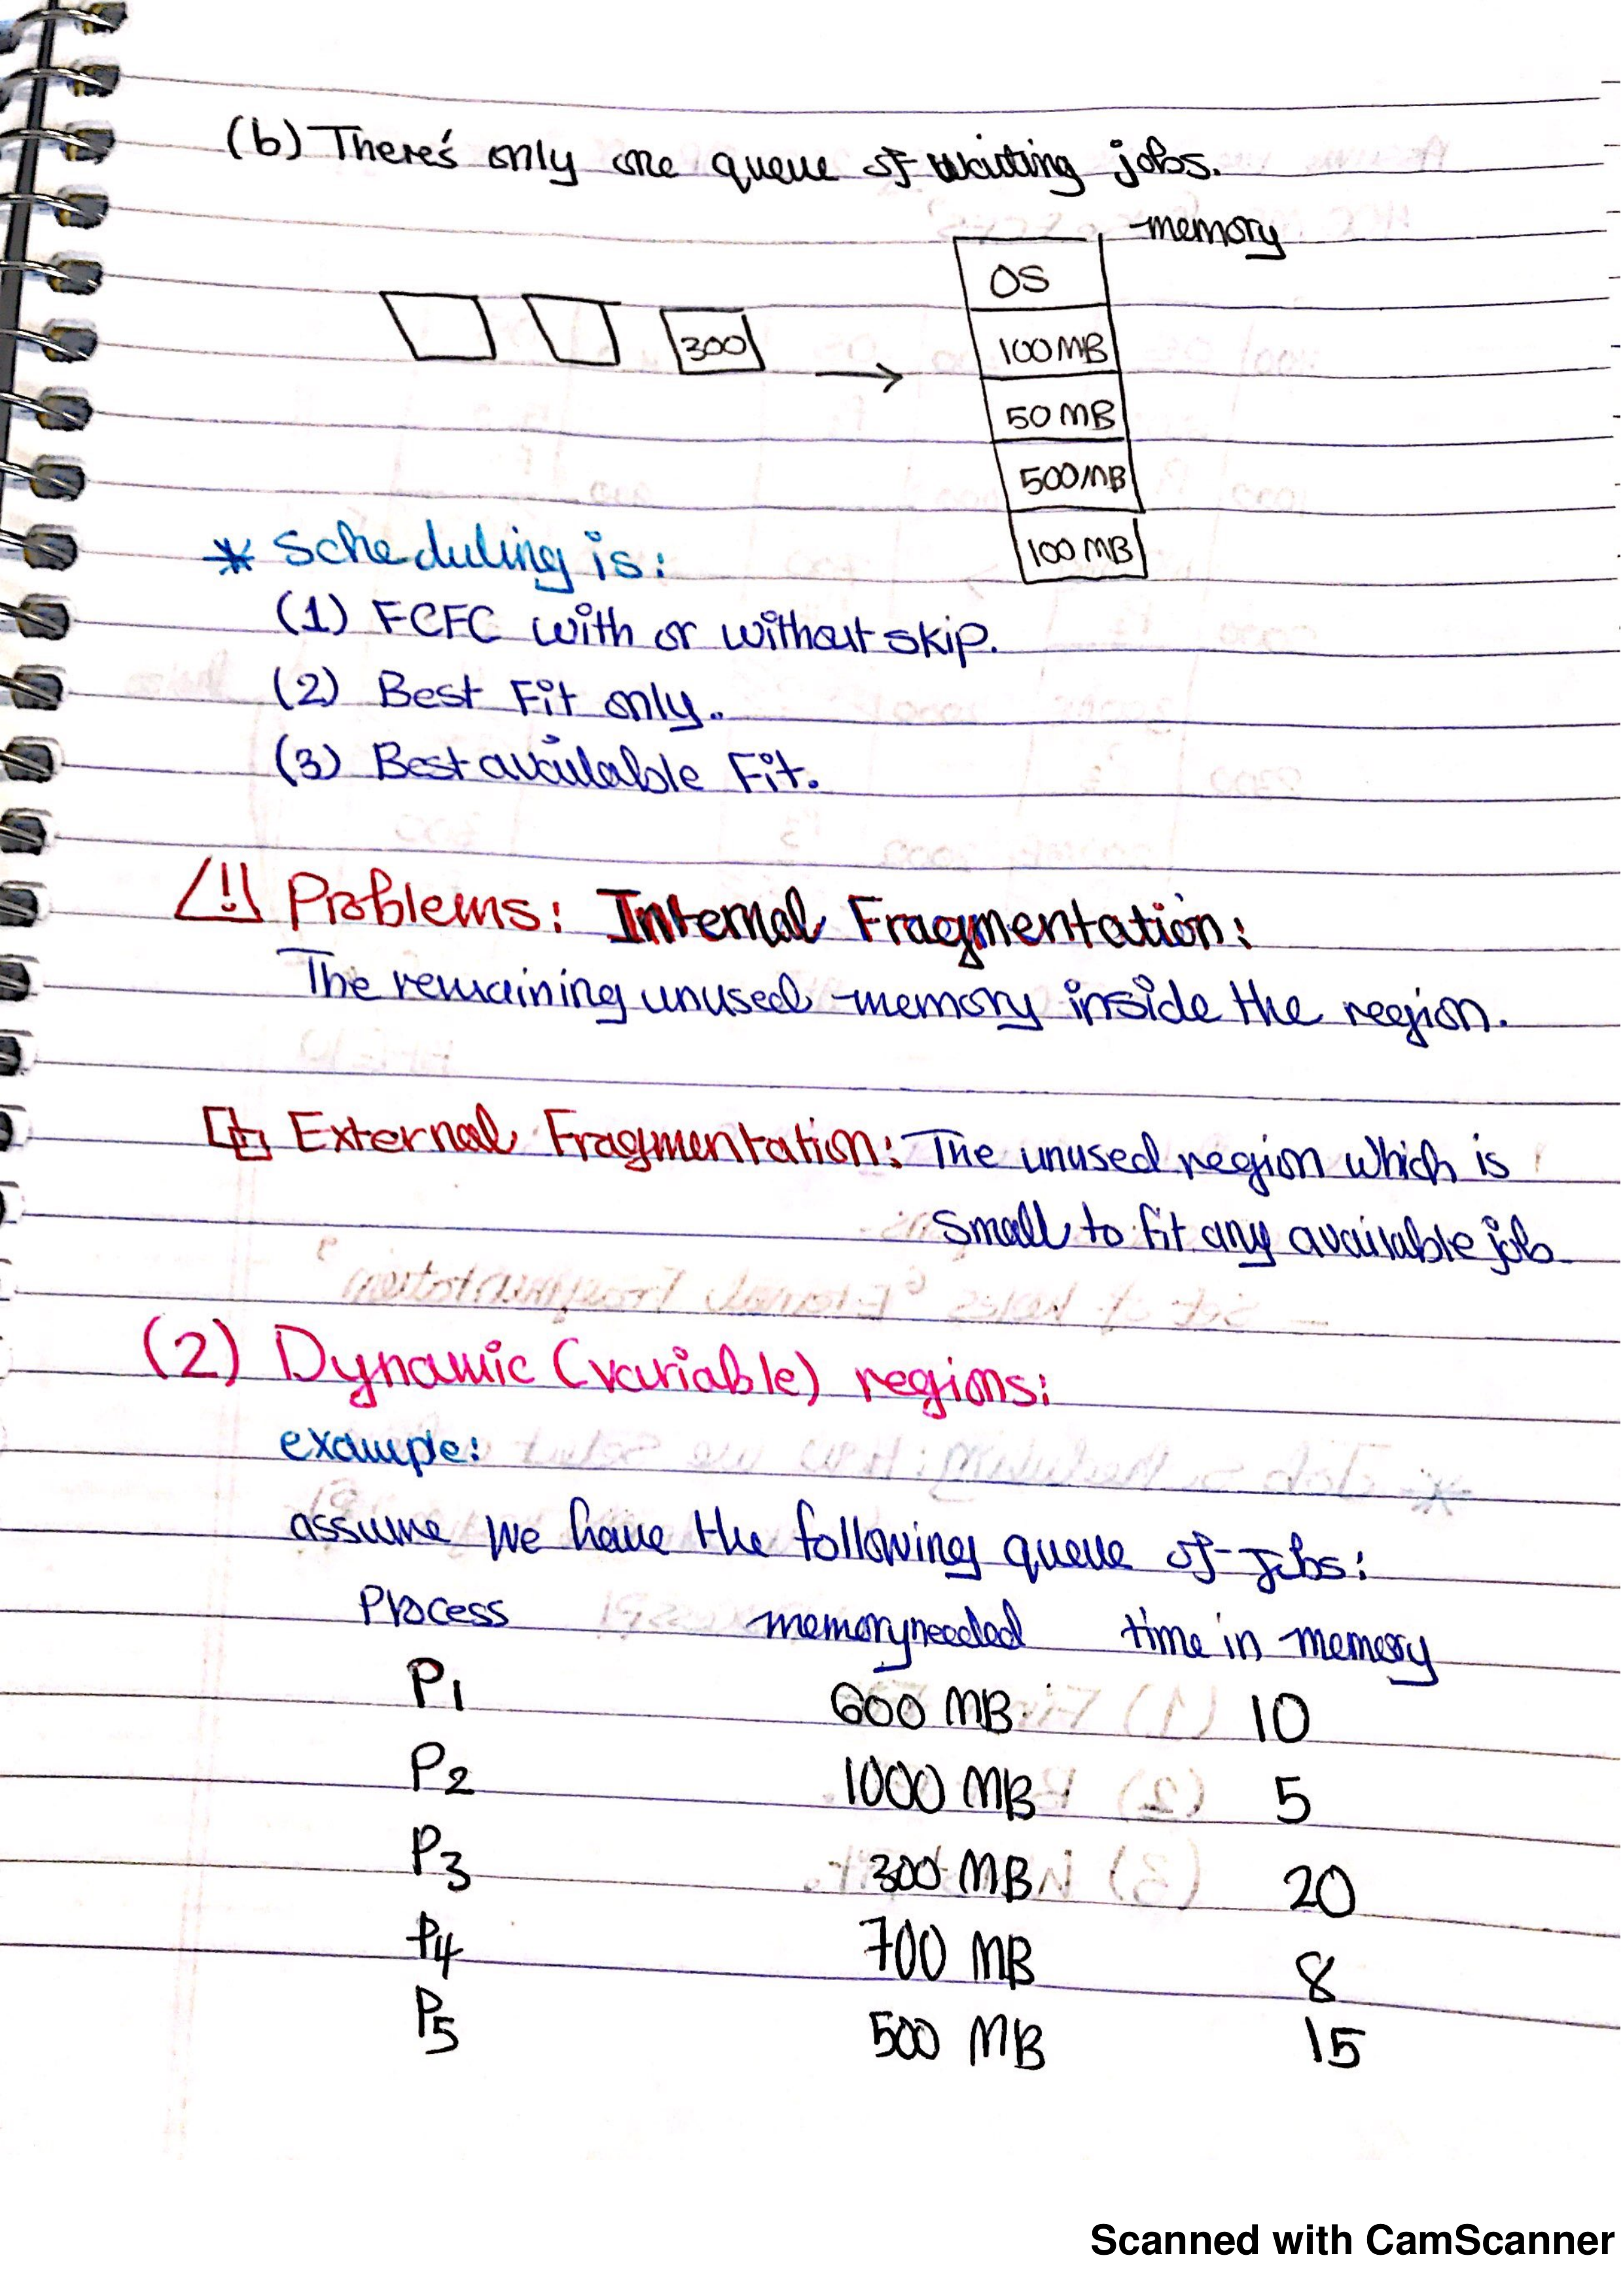 (b) There's only one queue of waiting jobs.
memory
OS
300
100MB
50 MB
500MB
100 MB
* Scheduling is:
(1) FCFC with or without skip.
(2) Best Fit only.
(3) Best available Fit.
Problems: Internal Fragmentation:
The remaining unused memory inside the region.
External Fragmentation: The unused region which is
small to fit any available job
(2) Dynamic (variable) regions:
example:
assume we have the following queue of jobs:
Process memory needed time in memory
P1 600 MB 10
P2 1000 MB 5
P3 300 MB 20
P4 700 MB 8
P5 500 MB 15
Scanned with CamScanner